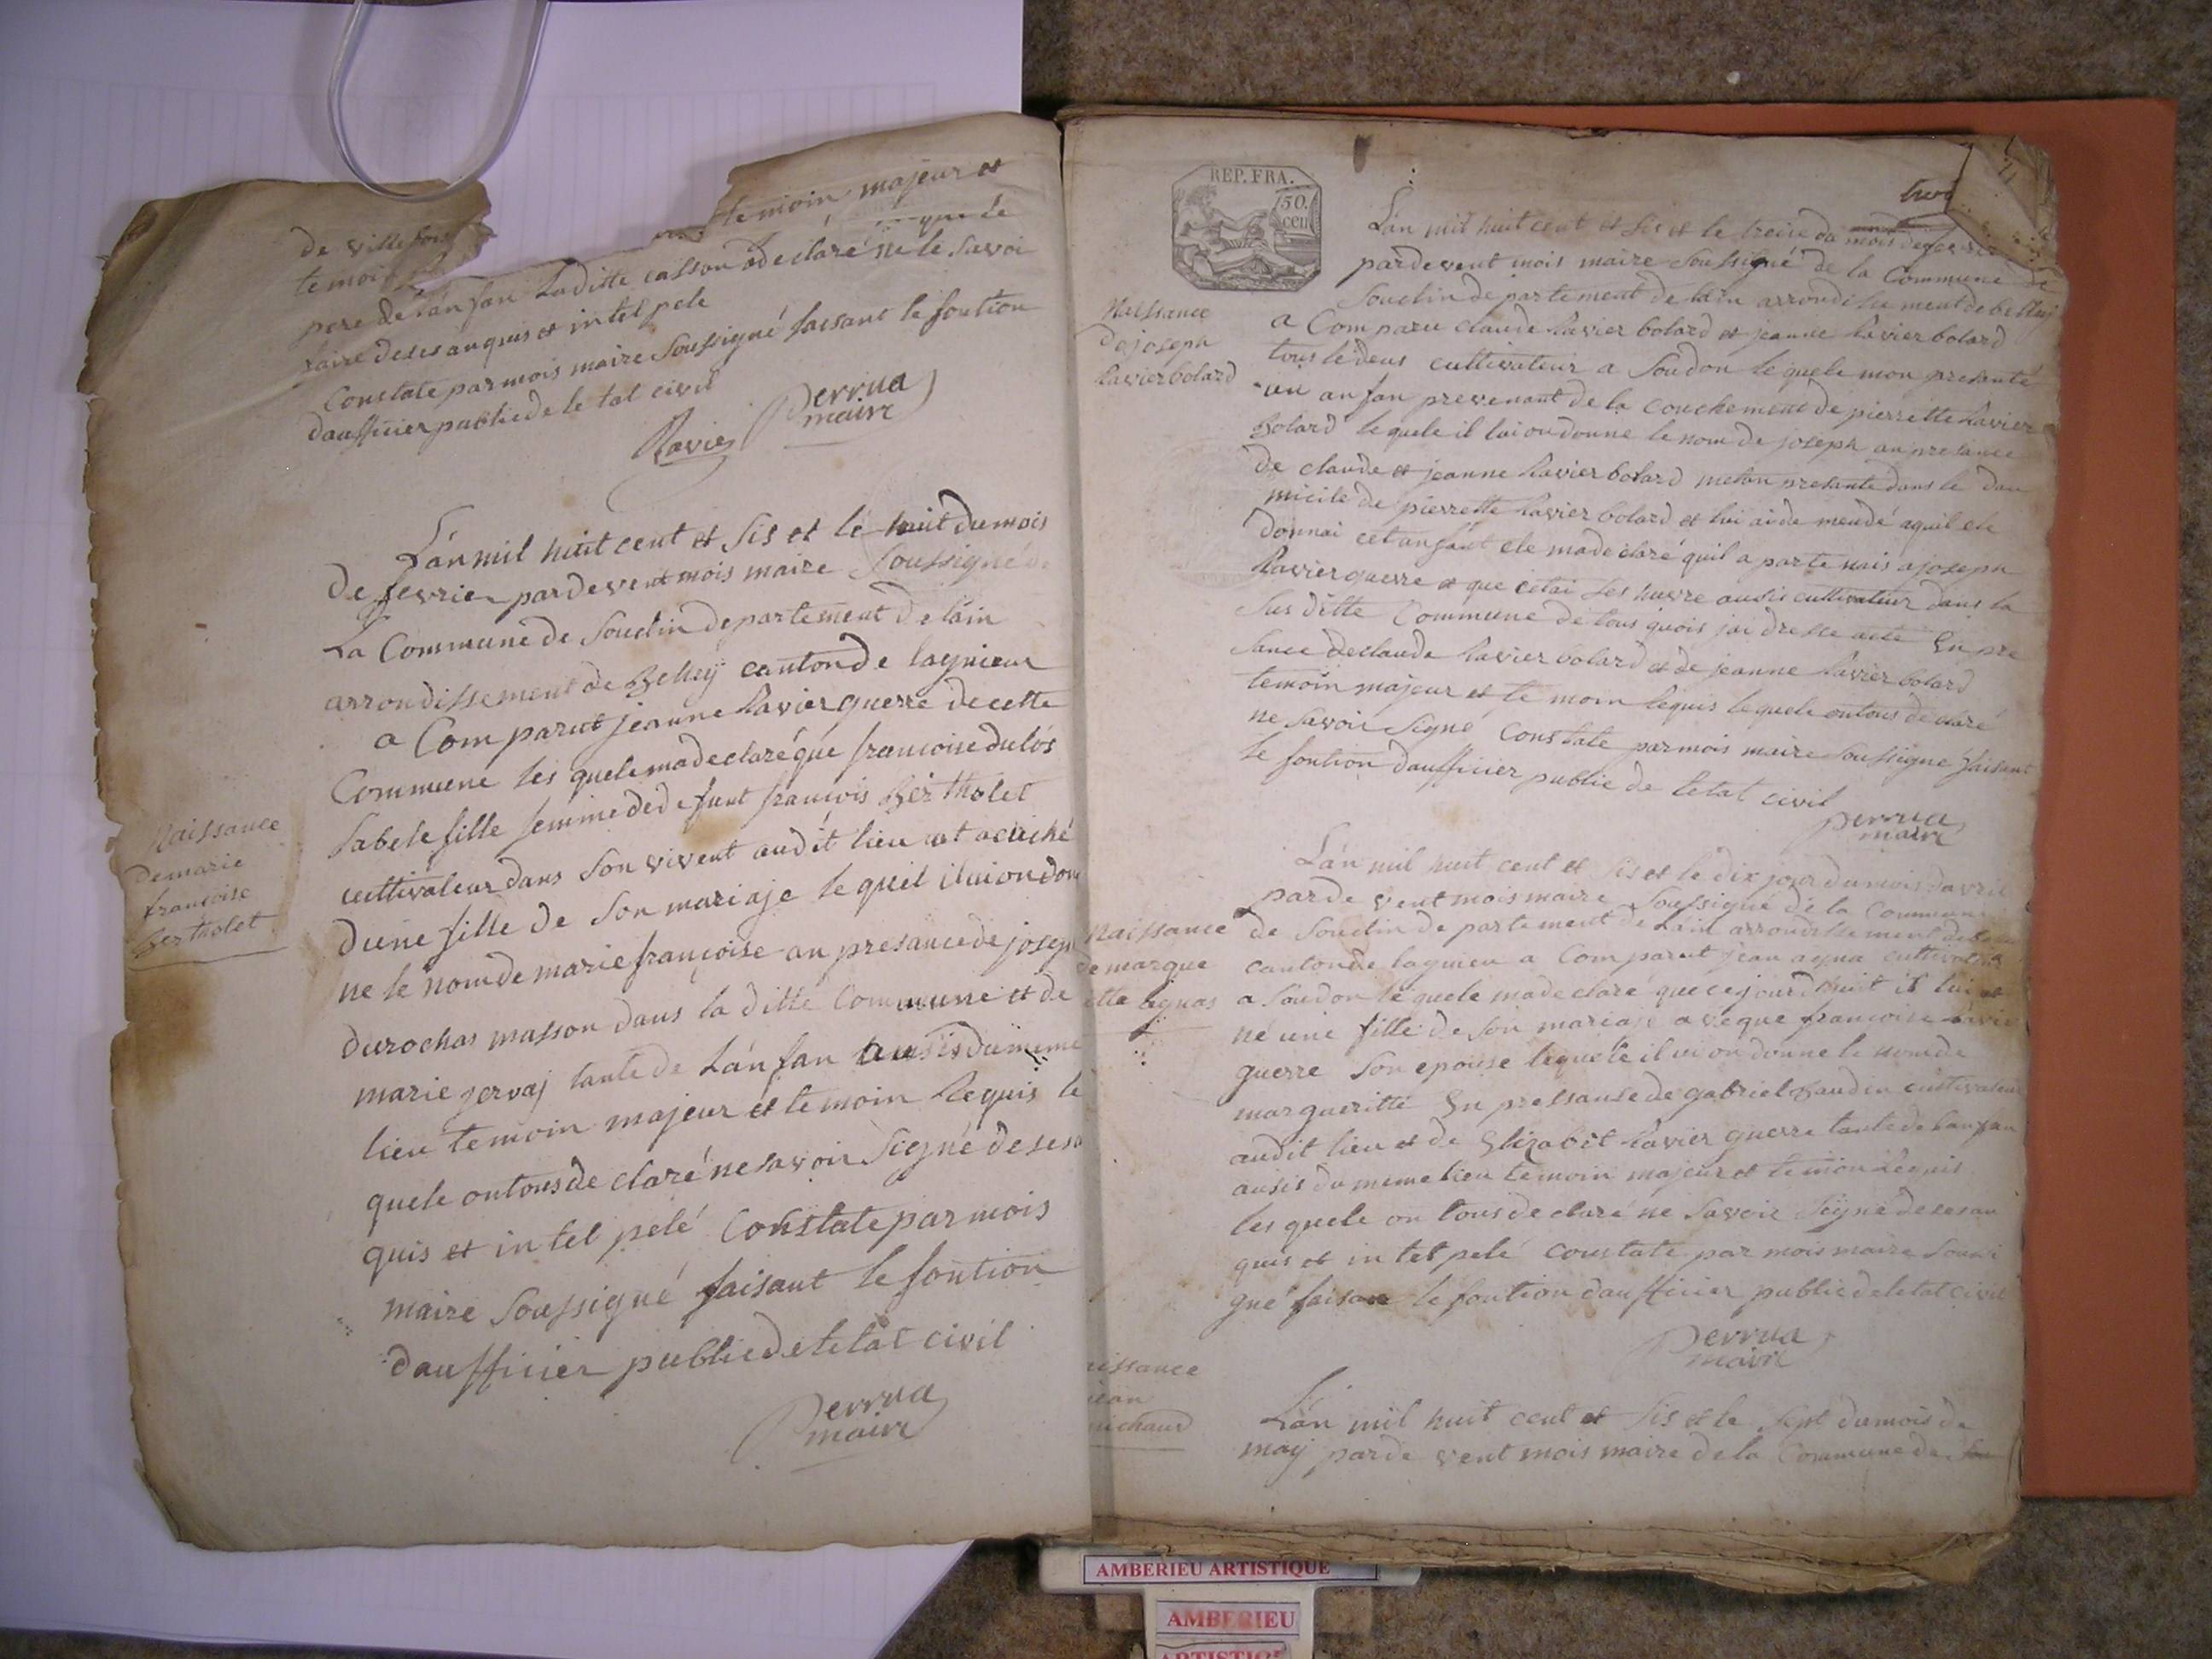 temoin majeur et
de ville
temoi
pere de lánfan laditte caisson a declaré ne le savoi
raire deses anquis et intelpele
Constate par mois maire Soussigné faisant le fontion
daufficier publiede le tat civil
Ravier Perrua
maire
Lán mil huit cent et Sis et le huit du mois
De fevrier pardevent mois maire Soussigné de
La Commune de Souclin departement De láin
arrondissement de Belley canton de lagnieu
a Comparut jeanne Ravier guerre de cette
Commune les quele madeclaré que francoise dulós
sabele fille femme dedefunt françois Bertholet
cultivateur dans Son vivent audit lieu at acuché
Dune fille de Son mariaje le quel il lui on don
ne le nom de marie françoise an presance de josep
Durochas masson dans la ditte Commune et de
marie gervaj tante de Lánfan ausis du mème
lieu temoin majeur et temoin Requis le
quele ontous de claré ne savoir Signé deses a
quis et in tel pelé Constate par mois
maire Soussigné faisant le fontion
daufficier publiede letat civil
Perrua
maire
Naissance
de marie
françoise
Bertholet
REP. FRA.
50.
cen
Lán mil huit cent et Sis et le treise du mois de fevrier
pardevent mois maire Soussigné de la Commune de
Souclin departement de láin arrondissement de belley
a Comparu claude Ravier bolard et jeanne Ravier bolard
tous le deus cultivateur a Soudon lequele mon presanté
un anfan prevenant de la couchement de pierrette Ravier
Bolard lequele il lui on donne le nom de joseph an presance
De claude et jeanne Ravier bolard melon presante dans le dau
micile de pierrette Ravier bolard et lui ai de mendé aquil ele
donnai cet anfant ele ma declaré quil a partenais a joseph
Ravier guerre et que cétai Ses huvre ausis cultivateur dans la
Sus ditte Commune de tous quois jai dresse acte En pre
Sance declaude Ravier bolard et de jeanne Ravier bolard
temoin majeur et te moin Requis lequele ontous de claré
ne Savoir Signé Constate par mois maire Soussigné faisant
le fontion daufficier publie de letat civil
Perrua
maire
Naissance
De joseph
Ravier bolard
Lán mil huit cent et Sis et le dix jour du mois davril
par de vent mois maire Soussigné de la Commune
de Souclin departement de Láin arrondissement de
canton de lagnieu a Comparut jean agua cultivateur
a Soudon lequele ma declaré que ce jourdhuit il lui et
né une fille de Son mariaje a veque francoise Ravier
guerre Son epouse lequele il ui on donne le nom de
margueritte En pressanse de gabriel Baudin cultivateur
audit lieu et de Elizabet Ravier guerre tante de lanfan
ausis du meme lieu temoin majeur et temoin Requis
les quele on tous de claré ne Savoir Signé de sesan
quis et in tel pelé Constate par mois maire Soussi
gné faisant le fontion daufficier publiede letat civil
Perrua
maire
Naissance
de margue
itte aguas
Lán mil huit cent et Sis et le Sept du mois de
may par de vent mois maire de la Commune de Sou
issance
jean
michaud
AMBERIEU ARTISTIQUE
AMBERIEU
ARTISTIQUE